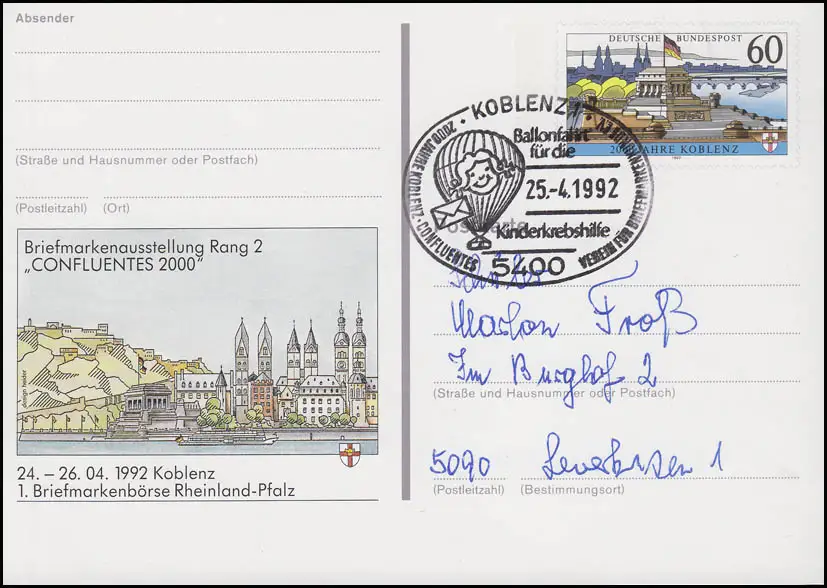 Absender
(Straße und Hausnummer oder Postfach)
(Postleitzahl) (Ort)
Briefmarkenausstellung Rang 2
„CONFLUENTES 2000"
design heider
24. – 26. 04. 1992 Koblenz
1. Briefmarkenbörse Rheinland-Pfalz
DEUTSCHE BUNDESPOST 60
2000 JAHRE KOBLENZ
1992
· KOBLENZ 1 ·
2000 JAHRE KOBLENZ · CONFLUENTES
VEREIN FÜR BRIEFMARKENKUNDE EV
Ballonfahrt
für die
25.-4.1992
Kinderkrebshilfe
5400
Postkarte
Schüler
Troß
Im Burghof 2
(Straße und Hausnummer oder Postfach)
5090 Leverkusen 1
(Postleitzahl) (Bestimmungsort)